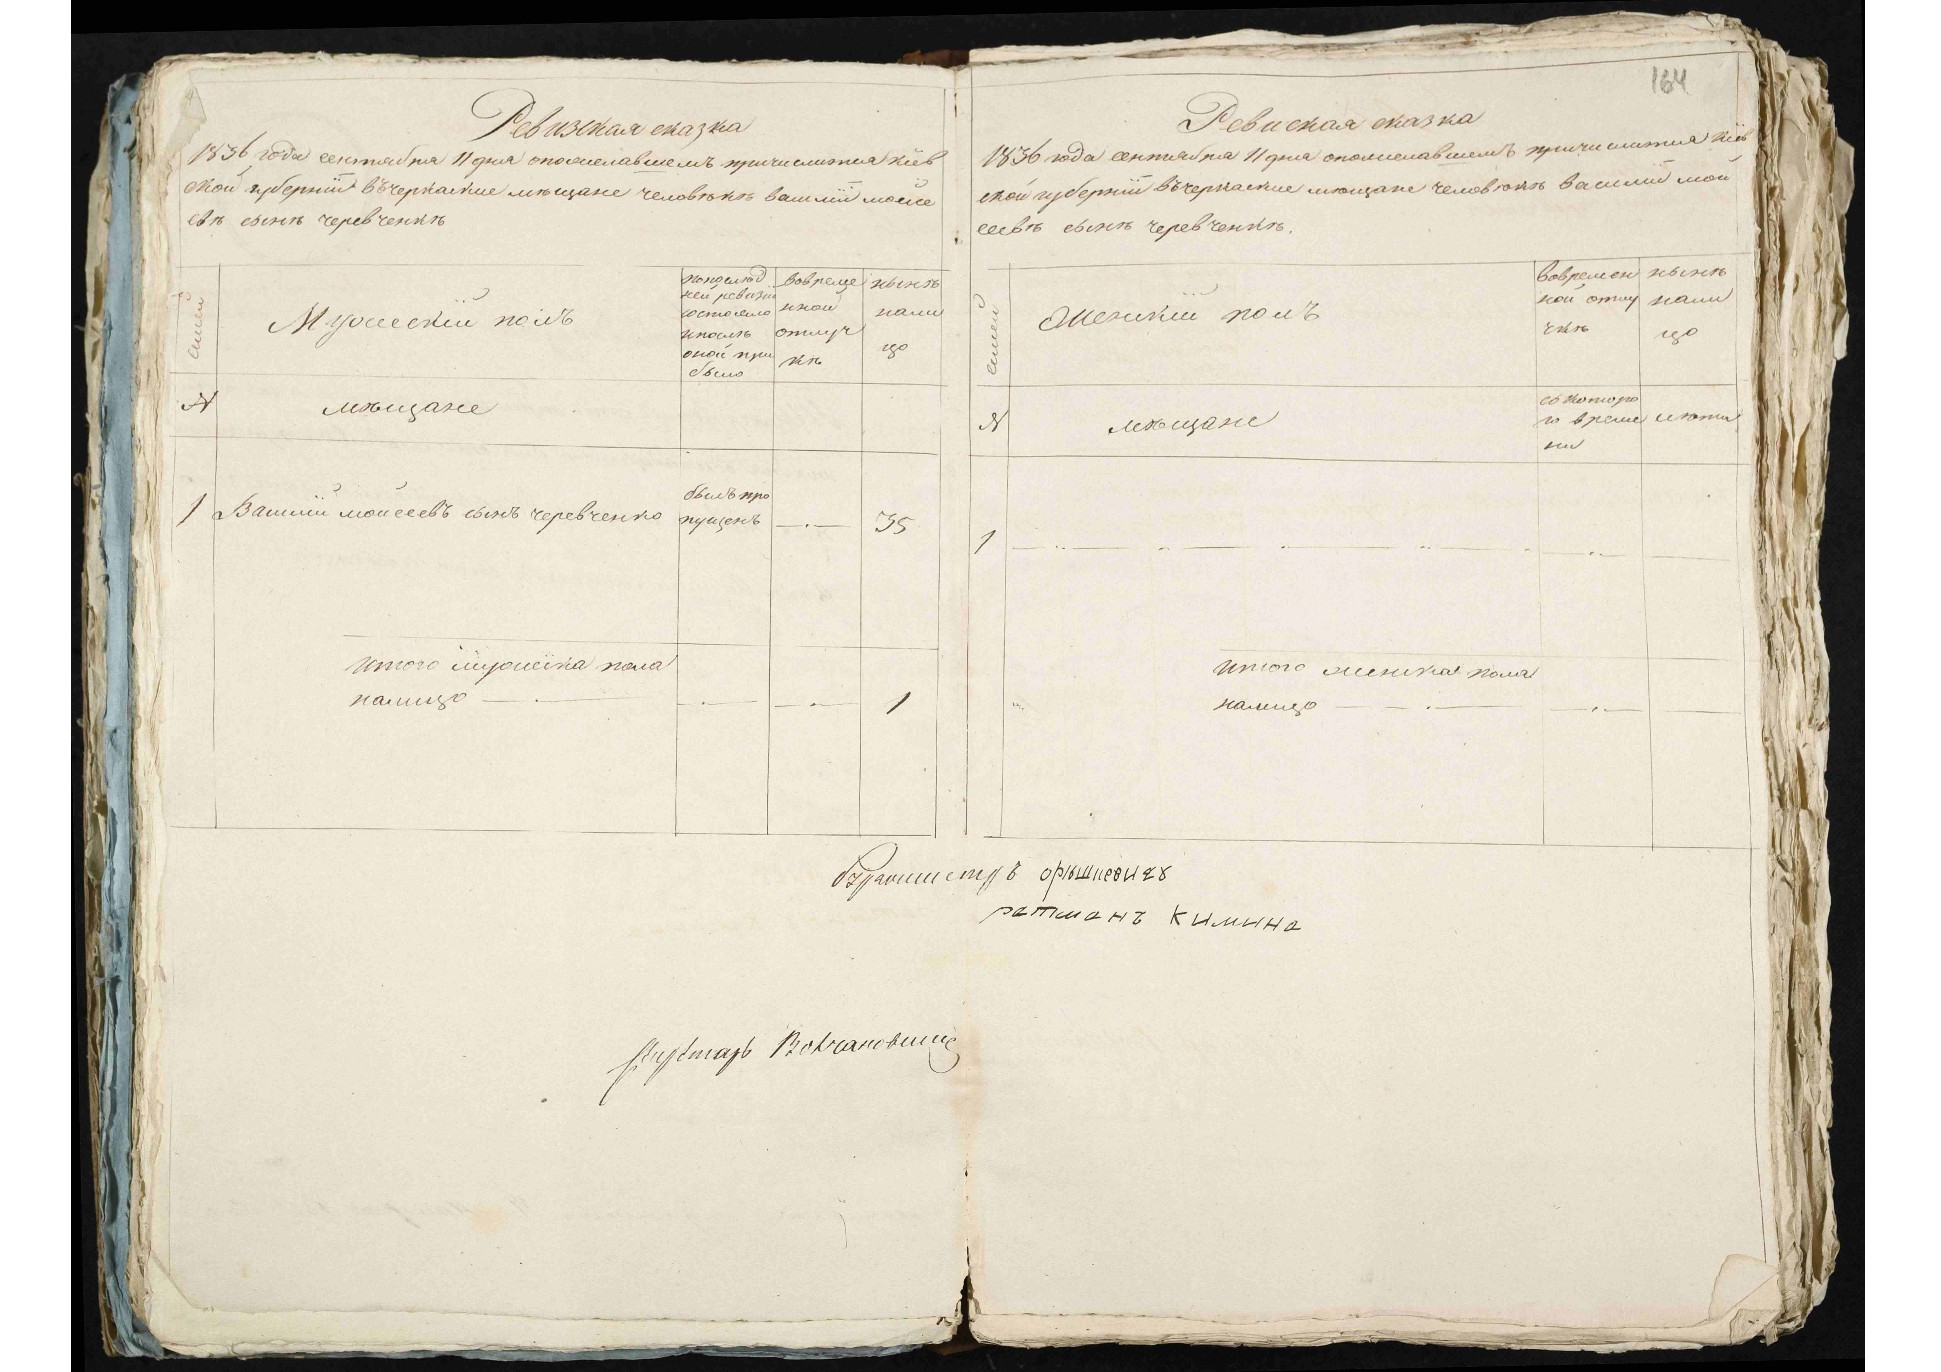 Ревизская сказка
1836 года сентября 11 дня опожелавшемъ причислится Кіев
ской губерніи вѣчеркаские мѣщане человѣкѣ василіи мойсе
евѣ сынѣ черевченкѣ
семей
Мужескій полъ
попослѣд
ней ревизіи
состояло
ипослѣ
оной при
было
вовреме
нной
отлуч
кѣ
нынѣ
нали
цо
№
мѣщане
1 Василій мойсеевъ сынъ черевченко
былъ про
пущенъ
35
итого мужеска пола
налицо
1
164
Ревиская сказка
1836 года сентября 11 дня опожелавшемъ причислится Кіев
ской губерніи вѣчеркаские мѣщане человѣкѣ василій мой
сеевѣ сынѣ черевченкѣ.
семей
Женскій полъ
вовремен
ной отлу
чкѣ
нынѣ
нали
цо
№
мѣщане
съкоторо
го време
ни
лѣта
1
итого женска пола
налицо
Бургомистръ
ратманъ Килина